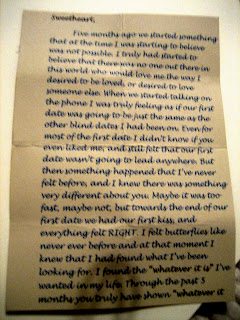 Sweetheart,
Five months ago we started something
that at the time I was starting to believe
was not possible. I truly had started to
believe that there was no one out there in
this world who would love me the way I
desired to be loved, or desired to love
someone else. When we started talking on
the phone I was truly feeling as if our first
date was going to be just the same as the
other blind dates I had been on. Even for
most of the first date I didn't know if you
even liked me, and still felt that our first
date wasn't going to lead anywhere. But
then something happened that I've never
felt before, and I knew there was something
very different about you. Maybe it was too
fast, maybe not, but towards the end of our
first date we had our first kiss, and
everything felt RIGHT. I felt butterflies like
never ever before and at that moment I
knew that I had found what I've been
looking for. I found the "whatever it is" I've
wanted in my life. Through the past 5
months you truly have shown "whatever it